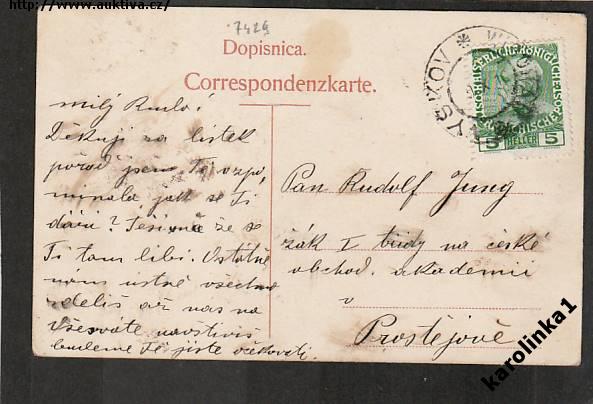 http://www.auktiva.cz/
7429
Dopisnica.
Correspondenzkarte.
VYŠKOV * WISCHAU
KAISERLICHE KÖNIGLICHE
5 HELLER 5
milý Rudo!
Děkuji za lístek
pořád jsem Ti vzpo,
minala jak se Ti
daří? Těší mě že se
Ti tam líbí. Ostatně
nám ústně všechno
sdělíš až nás na
Všesvaté navštívíš
budeme Tě jistě očekávati.
Pan Rudolf Jung
žák I třídy na české
obchod. akademii
v
Prostějově
karolinka1